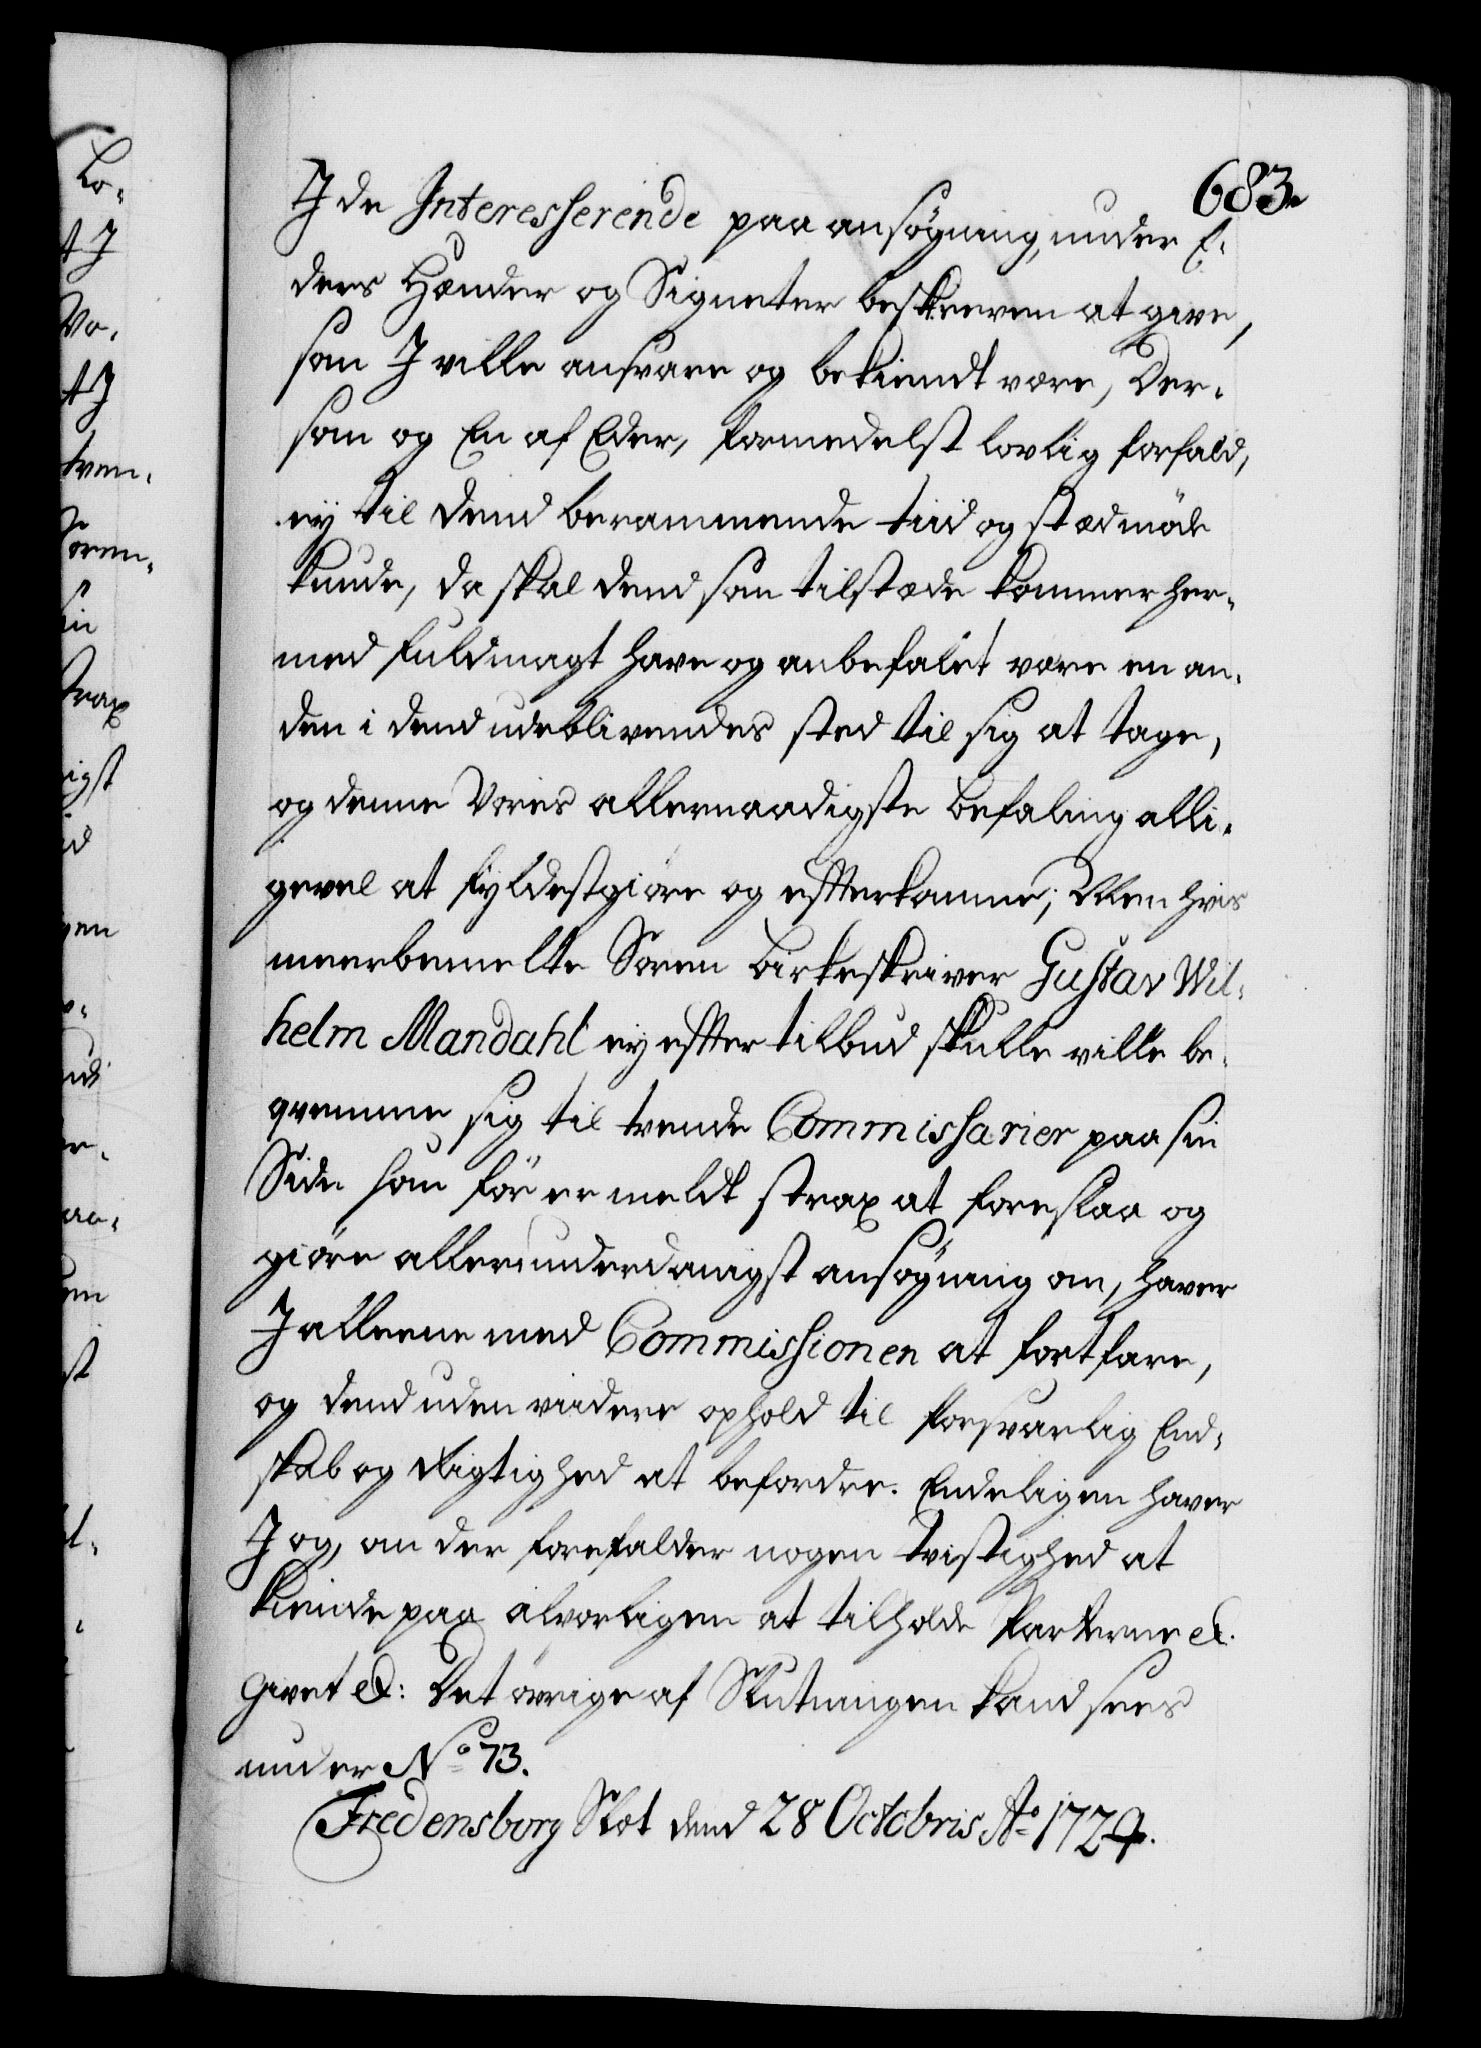 683.
I de Interesserende paa ansøgning, under E-
ders Hænder og Signeter beskreven at give,
som I ville ansvare og bekiendt være, Der-
som og En af Eder, formedelst lovlig forfald,
ey til dend berammende tiid og stæd møde
kunde, da skal dend som tilstæde kommer her-
med fuldmagt have og anbefalet være en an-
den i dend udeblivendes sted til sig at tage,
og denne Vores allernaadigste befaling alli-
gevel at fyldestgiøre og efterkomme; Men hvis
meerbemelte Soren Birkeskriver Gustav Wil-
helm Mandahl ey efter tilbud skulle ville be-
qvemme sig til trende Commissarier paa sin
Side som før er meldt strax at foreslaa og
giøre allerunderdanigst ansøgning om, haver
I alleene med Commissionen at fortfare,
og dend uden viidere ophold til forsvarlig End-
skab og Rigtighed at befordre. Endeligen haver
I og, om der forefalder nogen tvistighed at
kiende paa alvorligen at tilholde Parterne &.
Givet &: Det øvrige af Slutningen kand sees
under No 73.
Fredensborg Slot dend 28 Octobris Ao 1724.
Lo-
t I
Vo-
t I
tven-
Soren-
sin
strax